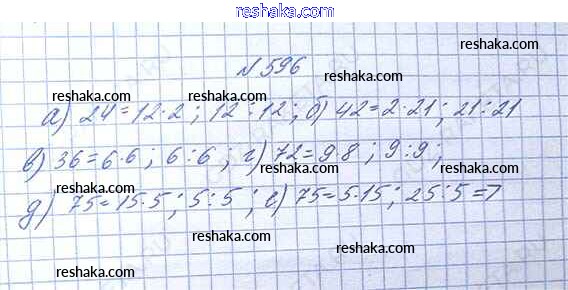 reshaka.com
№ 596
reshaka.com reshaka.com reshaka.com
а) 24=12·2; 12:12; б) 42=2·21; 21:21
reshaka.com reshaka.com reshaka.com
в) 36=6·6; 6:6; г) 72=9·8; 9:9;
reshaka.com reshaka.com reshaka.com
д) 75=15·5; 5:5; е) 75=5·15; 25:5=7
reshaka.com reshaka.com reshaka.com
reshaka.com